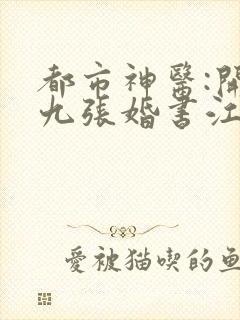 都市神醫:開
九張婚書江
愛被猫喫的魚